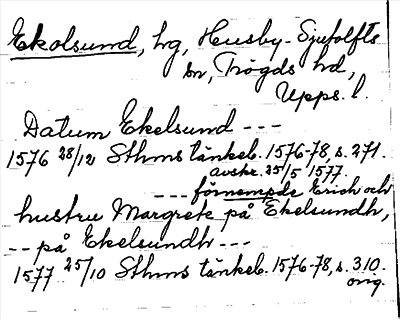 Ekolsund, hg, Husby-Sjutolfts
sn, Trögds hd,
Upps. l.
Datum Ekelsund ---
1576 28/12 Sthms tänkeb. 1576-78, s. 271.
avskr. 25/5 1577.
--- förnempde Erich och
hustru Margrete på Ekelsundh,
-- på Ekelsundh ---
1577 25/10 Sthms tänkeb. 1576-78, s. 310.
orig.